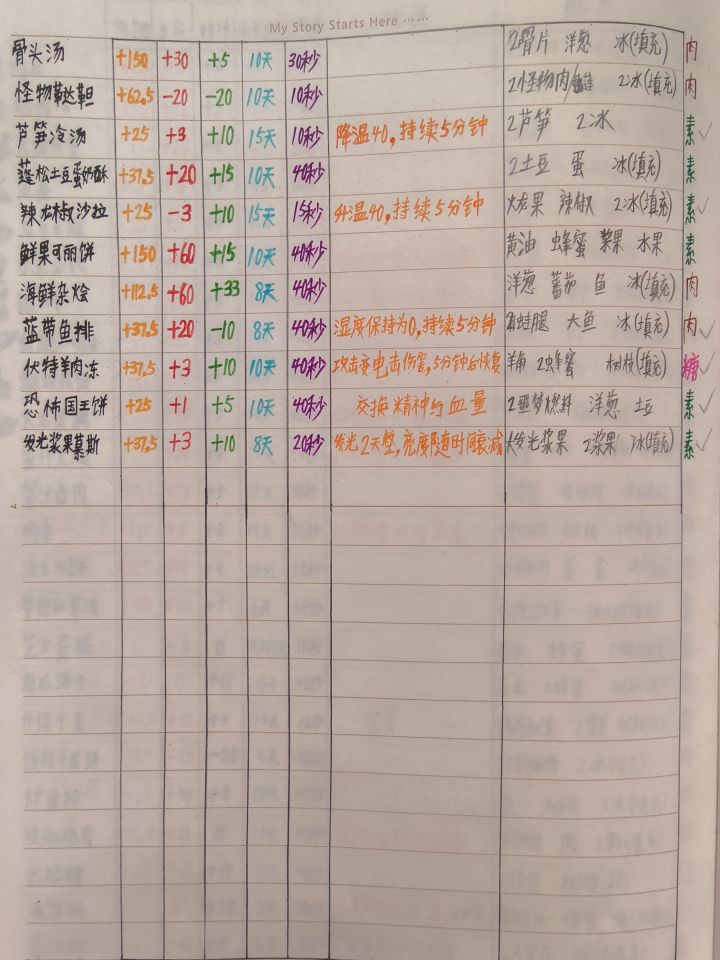 My Story Starts Here ……
骨头汤 +150 +30 +5 10天 30秒 2骨片 洋葱 冰(填充) 肉
怪物鞑靼 +62.5 -20 -20 10天 10秒 2怪物肉 2冰(填充) 肉
芦笋冷汤 +25 +3 +10 15天 10秒 降温40,持续5分钟 2芦笋 2冰 素✓
蓬松土豆蛋奶酥 +37.5 +20 +15 10天 40秒 2土豆 蛋 冰(填充) 素
辣龙椒沙拉 +25 -3 +10 15天 15秒 升温40,持续5分钟 火龙果 辣椒 2冰(填充) 素✓
鲜果可丽饼 +150 +60 +15 10天 40秒 黄油 蜂蜜 浆果 水果 素
海鲜杂烩 +112.5 +60 +33 8天 40秒 洋葱 蕃茄 鱼 冰(填充) 肉
蓝带鱼排 +37.5 +20 -10 8天 40秒 湿度保持为0,持续5分钟 青蛙腿 大鱼 冰(填充) 肉✓
伏特羊肉冻 +37.5 +3 +10 10天 40秒 攻击变电击伤害,5分钟后恢复 羊角 2蜂蜜 树枝(填充) 糖✓
恐怖国王饼 +25 +1 +5 10天 40秒 交换精神与血量 2噩梦燃料 洋葱 土豆 素✓
发光浆果慕斯 +37.5 +3 +10 8天 20秒 发光2天整,亮度随时间衰减 大发光浆果 2浆果 冰(填充) 素✓